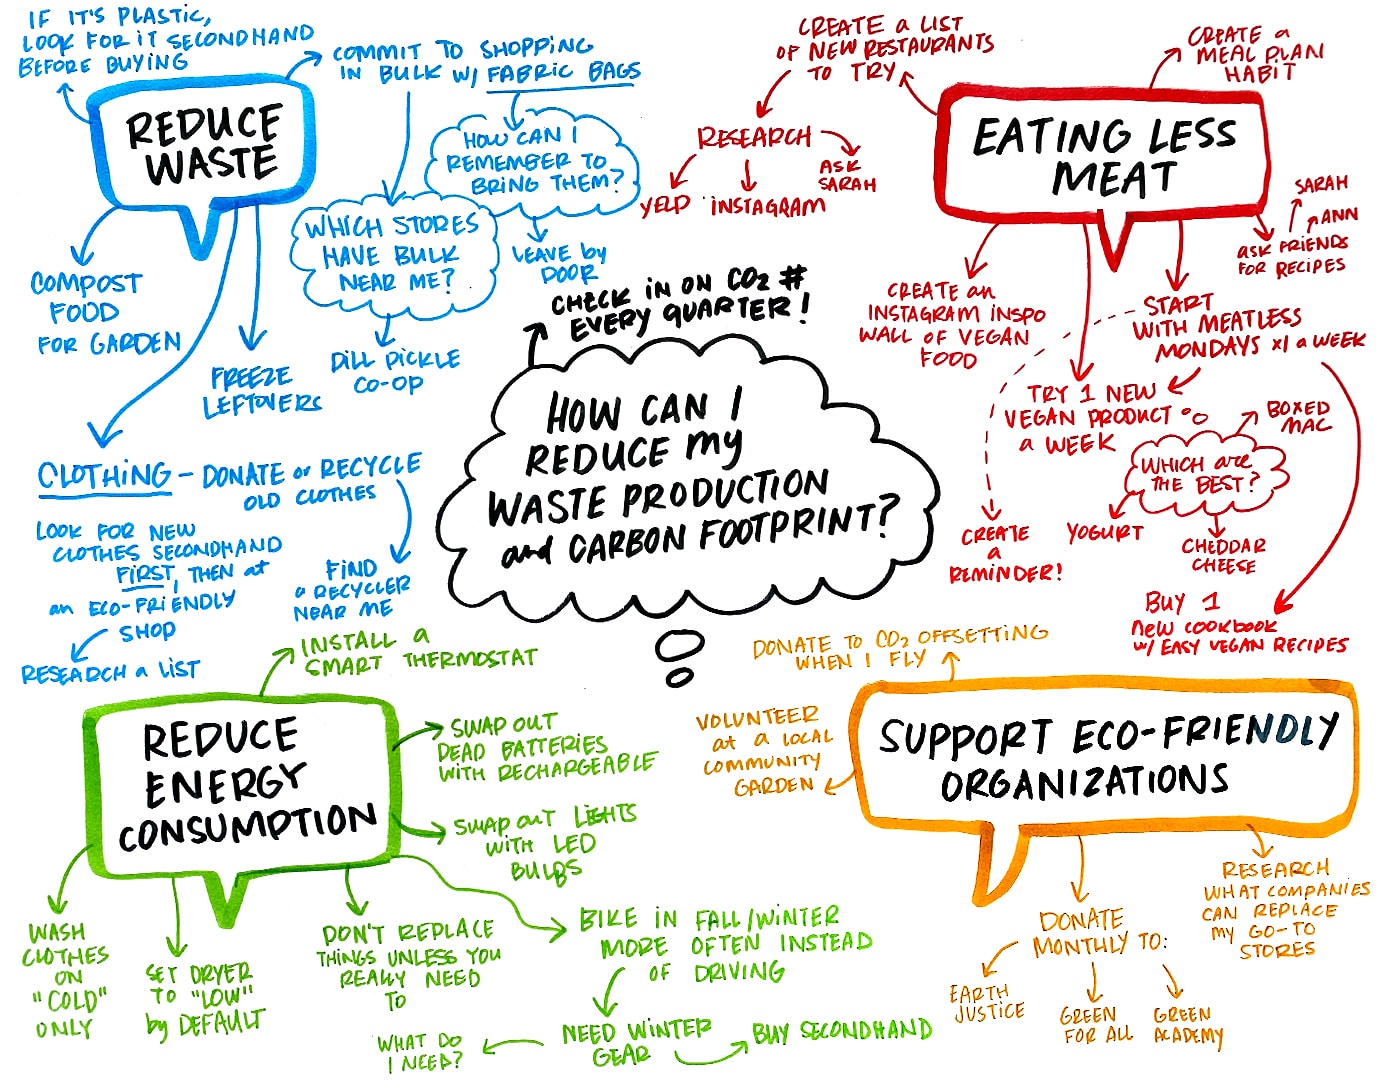 IF IT'S PLASTIC,
LOOK FOR IT SECONDHAND
BEFORE BUYING
COMMIT TO SHOPPING
IN BULK W/ FABRIC BAGS
REDUCE
WASTE
HOW CAN I
REMEMBER TO
BRING THEM?
WHICH STORES
HAVE BULK
NEAR ME?
LEAVE by
DOOR
DILL PICKLE
CO-OP
COMPOST
FOOD
FOR GARDEN
FREEZE
LEFTOVERS
CLOTHING – DONATE or RECYCLE
OLD CLOTHES
LOOK FOR NEW
CLOTHES SECONDHAND
FIRST, THEN at
an ECO-FRIENDLY
SHOP
RESEARCH a LIST
FIND
a RECYCLER
NEAR ME
CREATE a LIST
OF NEW RESTAURANTS
TO TRY
RESEARCH
YELP
INSTAGRAM
ASK
SARAH
CREATE a
MEAL PLAN
HABIT
EATING LESS
MEAT
SARAH
ANN
ask FRIENDS
FOR RECIPES
CREATE an
INSTAGRAM INSPO
WALL OF VEGAN
FOOD
START
WITH MEATLESS
MONDAYS x1 a WEEK
TRY 1 NEW
VEGAN PRODUCT
a WEEK
WHICH are
THE BEST?
BOXED
MAC
YOGURT
CHEDDAR
CHEESE
CREATE
a
REMINDER!
BUY 1
new COOKBOOK
W/ EASY VEGAN RECIPES
CHECK IN ON CO2 #
EVERY QUARTER!
HOW CAN I
REDUCE my
WASTE PRODUCTION
and CARBON FOOTPRINT?
INSTALL a
SMART THERMOSTAT
REDUCE
ENERGY
CONSUMPTION
SWAP OUT
DEAD BATTERIES
WITH RECHARGEABLE
SWAP OUT LIGHTS
WITH LED
BULBS
WASH
CLOTHES
ON
"COLD"
ONLY
SET DRYER
TO "LOW"
by DEFAULT
DON'T REPLACE
THINGS UNLESS YOU
REALLY NEED
TO
BIKE IN FALL/WINTER
MORE OFTEN INSTEAD
OF DRIVING
NEED WINTER
GEAR
WHAT DO
I NEED?
BUY SECONDHAND
DONATE TO CO2 OFFSETTING
WHEN I FLY
VOLUNTEER
at a LOCAL
COMMUNITY
GARDEN
SUPPORT ECO-FRIENDLY
ORGANIZATIONS
DONATE
MONTHLY TO:
EARTH
JUSTICE
GREEN
FOR ALL
GREEN
ACADEMY
RESEARCH
WHAT COMPANIES
CAN REPLACE
my GO-TO
STORES